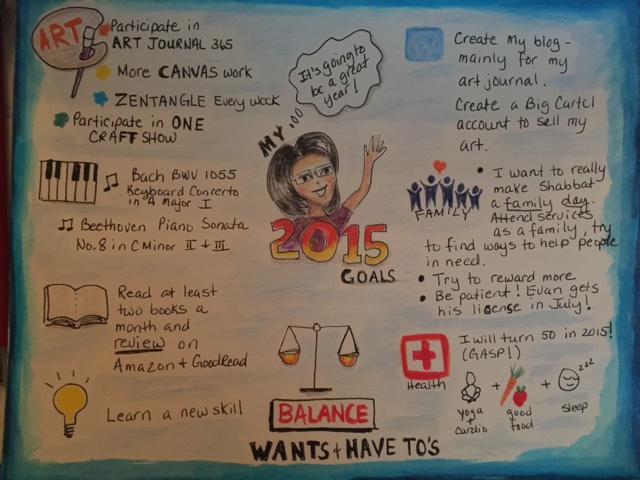 ART
Participate in
ART JOURNAL 365
More CANVAS work
ZENTANGLE Every week
Participate in ONE
CRAFT SHOW
It's going to
be a great
year!
Create my blog -
mainly for my
art journal.
Create a Big Cartel
account to sell my
art.
MY...
2015
GOALS
Bach BWV 1055
Keyboard Concerto
in A Major I
Beethoven Piano Sonata
No. 8 in C Minor II + III
FAMILY
• I want to really
make Shabbat
a family day.
Attend services
as a family, try
to find ways to help people
in need.
• Try to reward more
• Be patient! Evan gets
his license in July!
Read at least
two books a
month and
review on
Amazon + GoodRead
Learn a new skill
BALANCE
WANTS + HAVE TO'S
Health
I will turn 50 in 2015!
(GASP!)
yoga
+
cardio
+
good
food
+
zzz
sleep